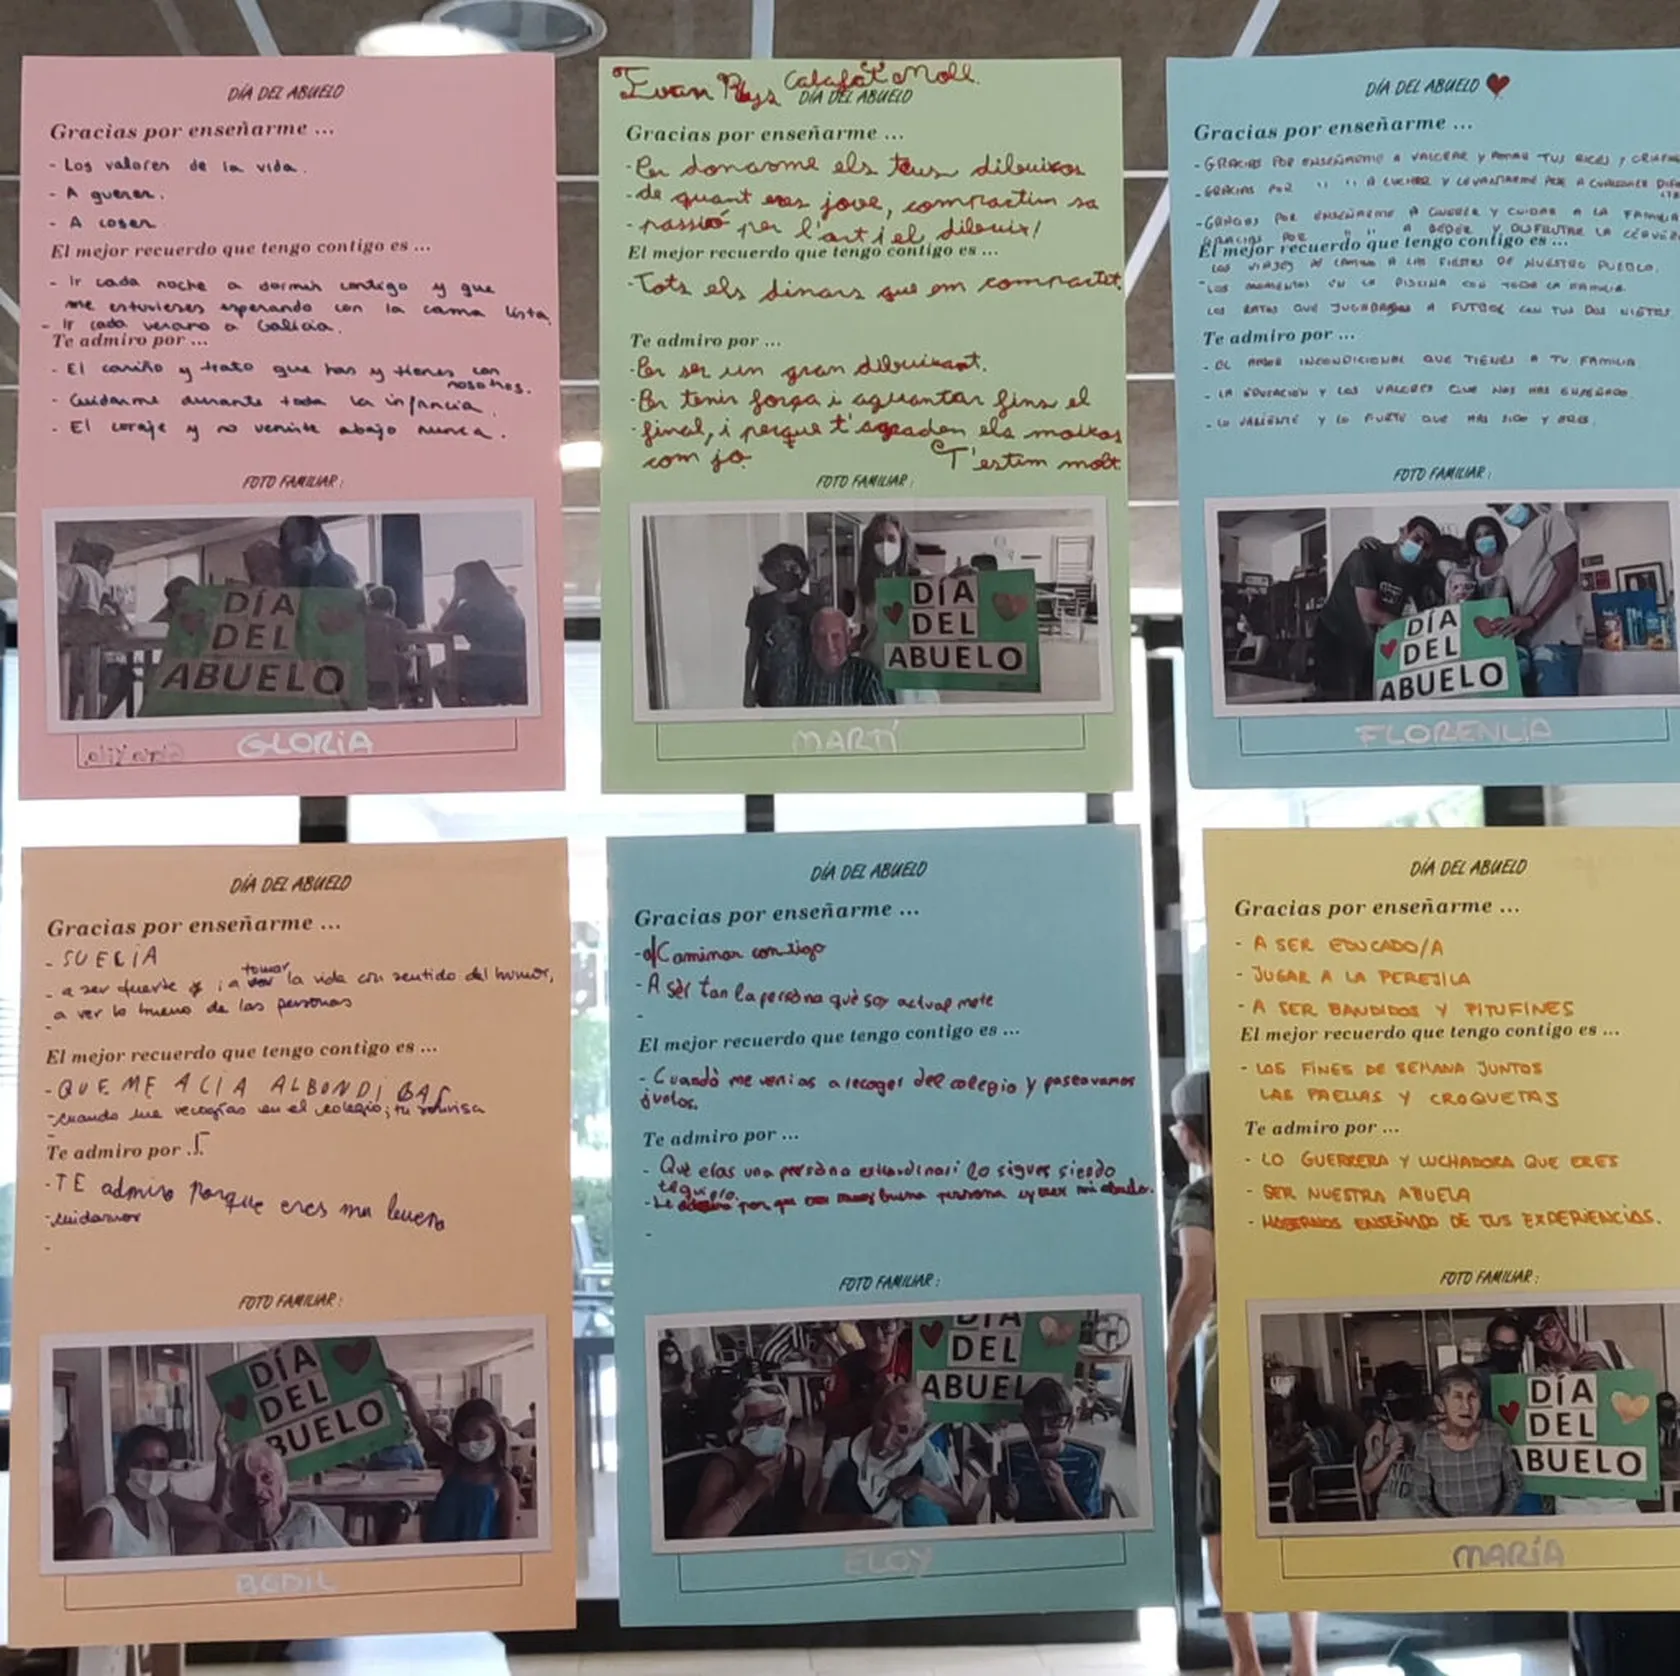 DÍA DEL ABUELO
Gracias por enseñarme ...
- Los valores de la vida.
- A querer.
- A coser.
El mejor recuerdo que tengo contigo es ...
- Ir cada noche a dormir contigo y que
me estuvieses esperando con la cama lista.
- Ir cada verano a Galicia.
Te admiro por ...
- El cariño y trato que has y tienes con
nosotros.
- Cuidarme durante toda la infancia.
- El coraje y no venirte abajo nunca.
FOTO FAMILIAR :
DÍA
DEL
ABUELO
GLORIA
Calafat Moll.
DÍA DEL ABUELO
Gracias por enseñarme ...
- Per donarme els teus dibuixos
- de quant eres jove, compartim sa
- passió per l'art i el dibuix!
El mejor recuerdo que tengo contigo es ...
- Tots els dinars que em compartit.
Te admiro por ...
- Per ser un gran dibuixant.
- Per tenir força i aguantar fins el
- final, i perque t'agraden els
com jo. T'estim molt
FOTO FAMILIAR :
DÍA
DEL
ABUELO
MARTÍ
DÍA DEL ABUELO
Gracias por enseñarme ...
- GRACIAS POR ENSEÑARME A VALORAR Y AMAR TUS RICES Y
- GRACIAS POR " " A LUCHAR Y LEVANTARME PESE A CUALQUIER
- GRACIAS POR ENSEÑARME A QUERER Y CUIDAR A LA FAMILIA
GRACIAS POR " " A BEBER Y DISFRUTAR LA
El mejor recuerdo que tengo contigo es ...
LOS VIAJES DE CAMINO A LAS FIESTAS DE NUESTRO PUEBLO.
- LOS MOMENTOS EN LA PISCINA CON TODA LA FAMILIA
LOS RATOS QUE JUGABAS A FUTBOL CON TUS DOS NIETOS
Te admiro por ...
- EL AMOR INCONDICIONAL QUE TIENES A TU FAMILIA
- LA EDUCACIÓN Y LOS VALORES QUE NOS HAS ENSEÑADO.
- LO VALIENTE Y LO FUERTE QUE HAS SIDO Y ERES.
FOTO FAMILIAR :
DÍA
DEL
ABUELO
FLORENCIA
DÍA DEL ABUELO
Gracias por enseñarme ...
- SUECIA
- a ser fuerte y a tomar la vida con sentido del humor,
a ver lo bueno de las personas
-
El mejor recuerdo que tengo contigo es ...
- QUE ME ACIA ALBONDIGAS
- cuando me recogías en el colegio; tu sonrisa
-
Te admiro por ...
- TE admiro Porque eres mu buena
- cuidarnos
-
FOTO FAMILIAR :
DÍA
DEL
ABUELO
BODIL
DÍA DEL ABUELO
Gracias por enseñarme ...
- Caminar contigo
- A ser tan la persona que soy actual mete
-
El mejor recuerdo que tengo contigo es ...
- Cuando me venias a recoger del colegio y paseavamos
juntos.
Te admiro por ...
- Que eras una persona
sigues siendo
te quiero.
- porque buena persona mi abuelo.
-
FOTO FAMILIAR :
DÍA
DEL
ABUEL
ELOY
DÍA DEL ABUELO
Gracias por enseñarme ...
- A SER EDUCADO/A
- JUGAR A LA PEREJILA
- A SER BANDIDOS Y PITUFINES
El mejor recuerdo que tengo contigo es ...
- LOS FINES DE SEMANA JUNTOS
LAS PAELLAS Y CROQUETAS
Te admiro por ...
- LO GUERRERA Y LUCHADORA QUE ERES
- SER NUESTRA ABUELA
- HABERNOS ENSEÑADO DE TUS EXPERIENCIAS.
FOTO FAMILIAR :
DÍA
DEL
ABUELO
MARÍA